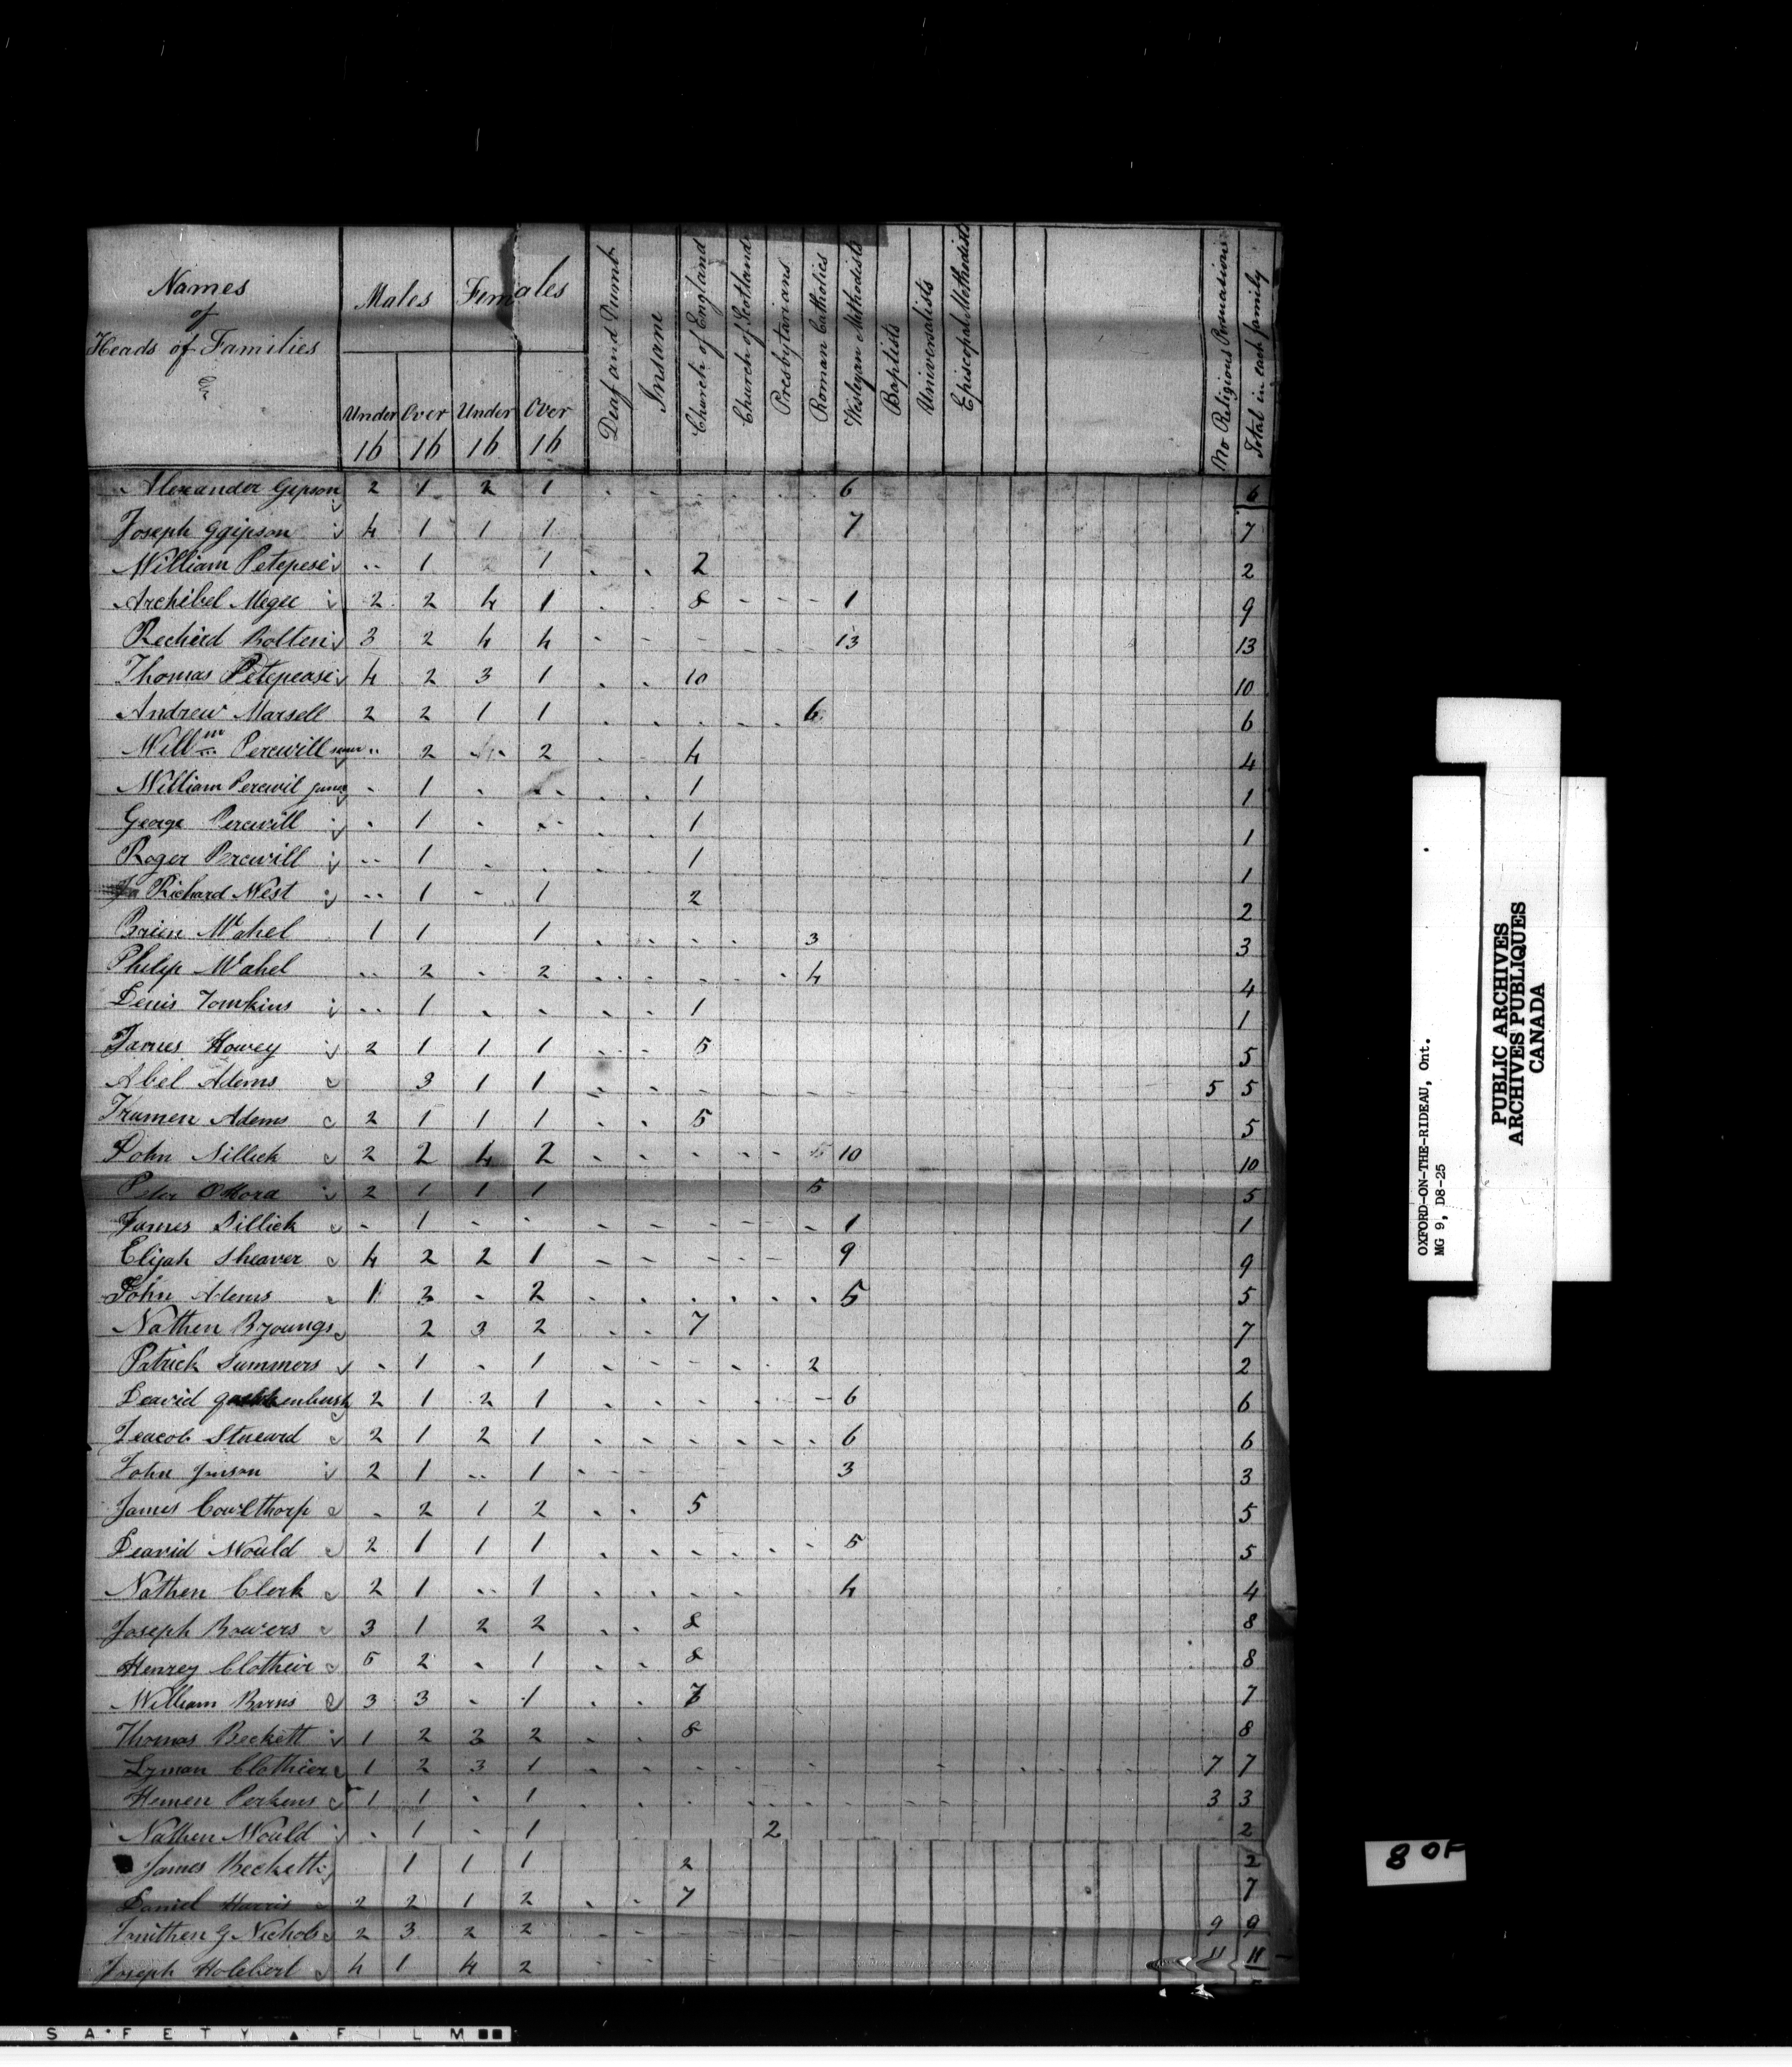 Names
of
Heads of Families
Males
Females
Under 16
Over 16
Under 16
Over 16
Deaf and Dumb
Insane
Church of England
Church of Scotland
Presbytarians
Roman Catholics
Wesleyan Methodists
Baptists
Universalists
Episcopal Methodists
No Religious Persuasions
Total in each family
Alexander Gipson 2 1 2 1 6 6
Joseph Ggipson 4 1 1 1 7 7
William Petepese 1 1 2 2
Archibel Megee 2 2 4 1 8 1 9
Recherd Bolten 3 2 4 4 13 13
Thomas Petepease 4 2 3 1 10 10
Andrew Marsell 2 2 1 1 6 6
Willm Percwill 2 2 4 4
William Percwil 1 1 1
George Percwill 1 1 1
Roger Percwill 1 1 1
Richard West 1 1 2 2
Brien Mcahel 1 1 1 3 3
Philip Mcahel 2 2 4 4
Denis Tomkins 1 1 1
James Howey 2 1 1 1 5 5
Abel Adems 3 1 1 5 5
Trumen Adems 2 1 1 1 5 5
John Sillick 2 2 4 2 10 10
Peter OHara 2 1 1 1 5 5
James Sillick 1 1 1
Elijah Sheaver 4 2 2 1 9 9
John Adems 1 2 2 5 5
Nathen Byoungs 2 3 2 7 7
Patrick Summers 1 1 2 2
Deavid 2 1 2 1 6 6
Jeacob Stueard 2 1 2 1 6 6
John Jonson 2 1 1 3 3
James Cowlthorp 2 1 2 5 5
Deavid Mould 2 1 1 1 5 5
Nathen Clerk 2 1 1 4 4
Joseph Bowers 3 1 2 2 8 8
Henrey Clotheir 5 2 1 8 8
William Barns 3 3 1 7 7
Thomas Beckett 1 2 3 2 8 8
Lyman Clothier 1 2 3 1 7 7
Hemen Perkens 1 1 1 3 3
Nathen Mould 1 1 2 2
James Beckett 1 1 1 2 2
Daniel Harris 2 2 1 2 7 7
G Nichols 2 3 2 2 9 9
Joseph Holebert 4 1 4 2 11 11
OXFORD-ON-THE-RIDEAU, Ont.
MG 9, D8-25
PUBLIC ARCHIVES
ARCHIVES PUBLIQUES
CANADA
8 OF
SAFETY FILM